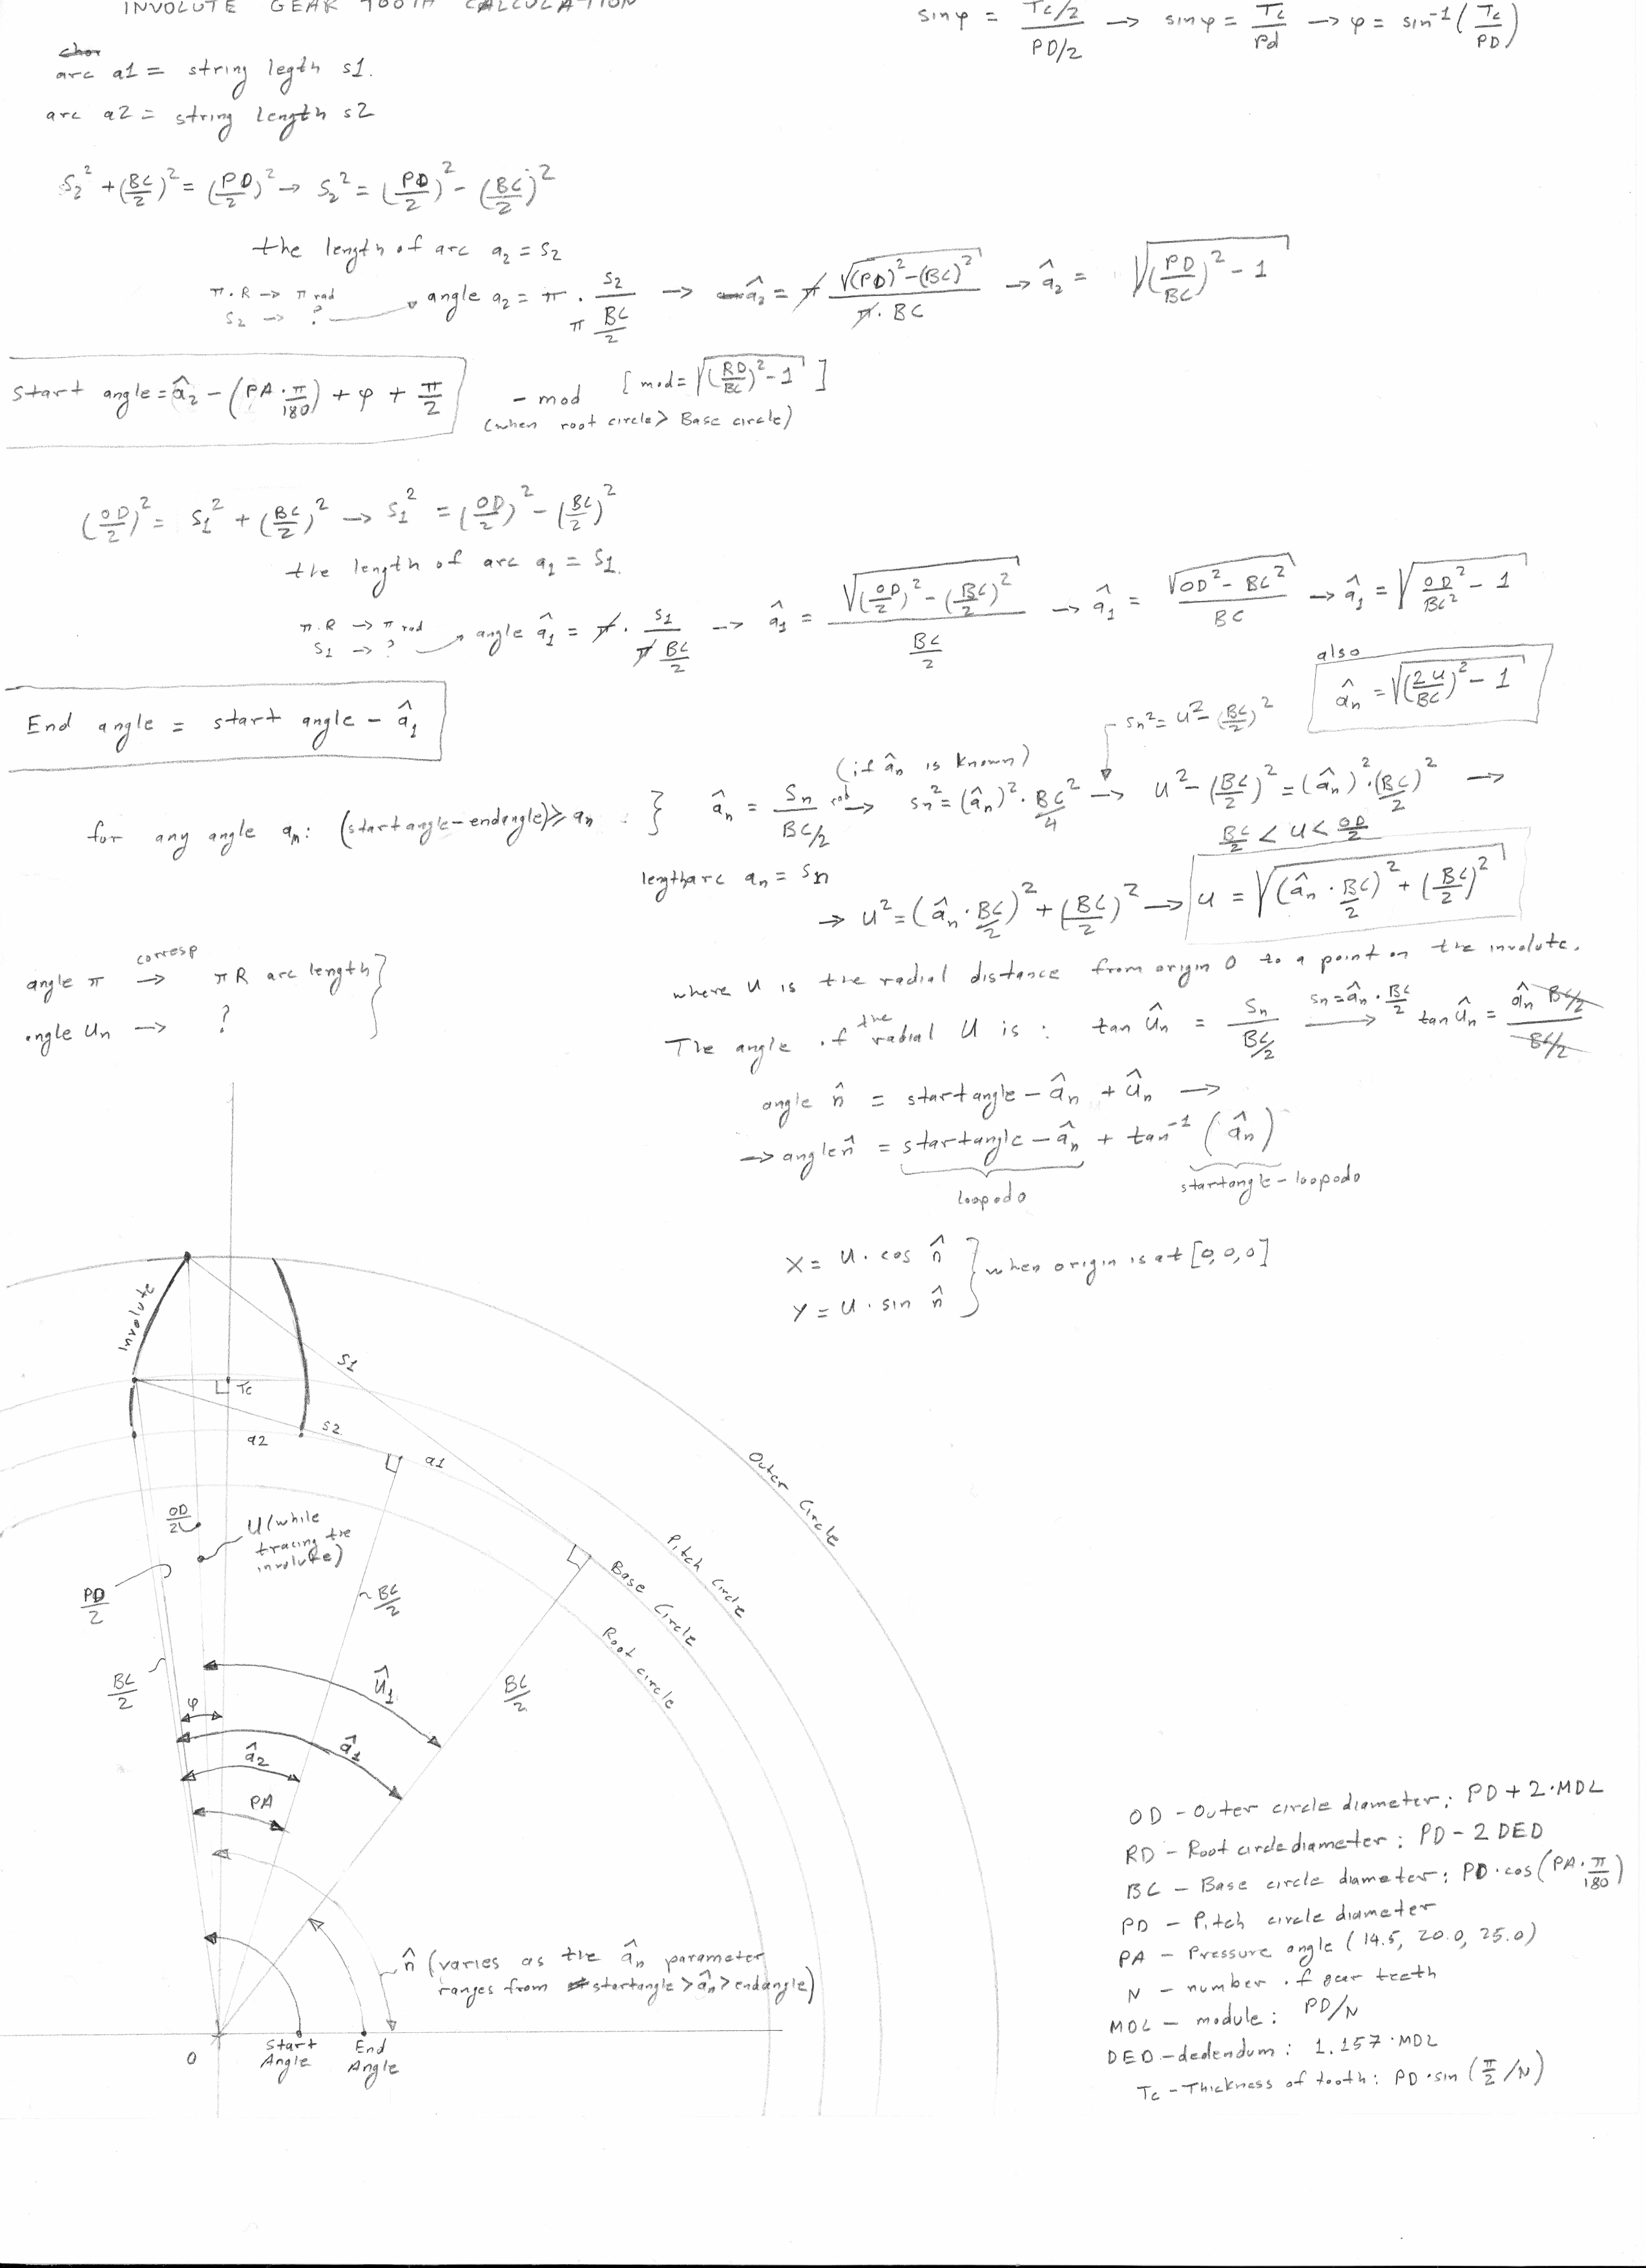 INVOLUTE GEAR TOOTH CALCULATION
sin φ = (Tc/2)/(PD/2) → sin φ = Tc/Pd → φ = sin⁻¹(Tc/PD)
chor
arc a1 = string legth s1.
arc a2 = string length s2
S₂² + (BC/2)² = (PD/2)² → S₂² = (PD/2)² - (BC/2)²
the length of arc a₂ = s₂
π·R → π rad
S₂ → ?
angle a₂ = π · S₂/(π BC/2) → â₂ = π √((PD)²-(BC)²)/(π·BC) → â₂ = √((PD/BC)² - 1)
start angle = â₂ - (PA·π/180) + φ + π/2
- mod [mod = √((RD/BC)² - 1)]
(when root circle > Base circle)
(OD/2)² = S₁² + (BC/2)² → S₁² = (OD/2)² - (BC/2)²
the length of arc a₁ = S1.
π·R → π rad
S₁ → ?
angle â₁ = π · S₁/(π BC/2) → â₁ = √((OD/2)² - (BC/2)²)/(BC/2) → â₁ = √(OD² - BC²)/BC → â₁ = √(OD²/BC² - 1)
also
ân = √((2u/BC)² - 1)
End angle = start angle - â₁
Sn² = u² - (BC/2)²
(if ân is known)
for any angle an: (startangle-endangle) ≥ an } ân = Sn/(BC/2) → sn² = (ân)² · BC²/4 → u² - (BC/2)² = (ân)² · (BC/2)² →
BC/2 < u < OD/2
length arc an = Sn
→ u² = (ân · BC/2)² + (BC/2)² → u = √((ân · BC/2)² + (BC/2)²)
angle π corresp → πR arc length
angle Un → ?
where u is the radial distance from origin O to a point on the involute.
The angle of the radial U is: tan Ûn = Sn/(BC/2) sn = ân · BC/2 → tan Ûn = (ân BC/2)/(BC/2)
angle n̂ = startangle - ân + Ûn →
→ angle n̂ = startangle - ân + tan⁻¹(ân)
loopodo
startangle - loopodo
X = u · cos n̂
Y = u · sin n̂
} when origin is at [0,0,0]
Involute
S1
Tc
S2
a2
a1
OD/2
U (while tracing the involute)
PD/2
BC/2
BC/2
BC/2
Outer Circle
Pitch Circle
Base Circle
Root circle
Û₁
φ
â₁
â₂
PA
n̂ (varies as the ân parameter
ranges from startangle > ân > endangle)
O
Start Angle
End Angle
OD - Outer circle diameter: PD + 2·MDL
RD - Root circle diameter: PD - 2 DED
BC - Base circle diameter: PD·cos(PA·π/180)
PD - Pitch circle diameter
PA - Pressure angle (14.5, 20.0, 25.0)
N - number of gear teeth
MDL - module: PD/N
DED - dedendum: 1.157·MDL
Tc - Thickness of tooth: PD·sin(π/2 /N)